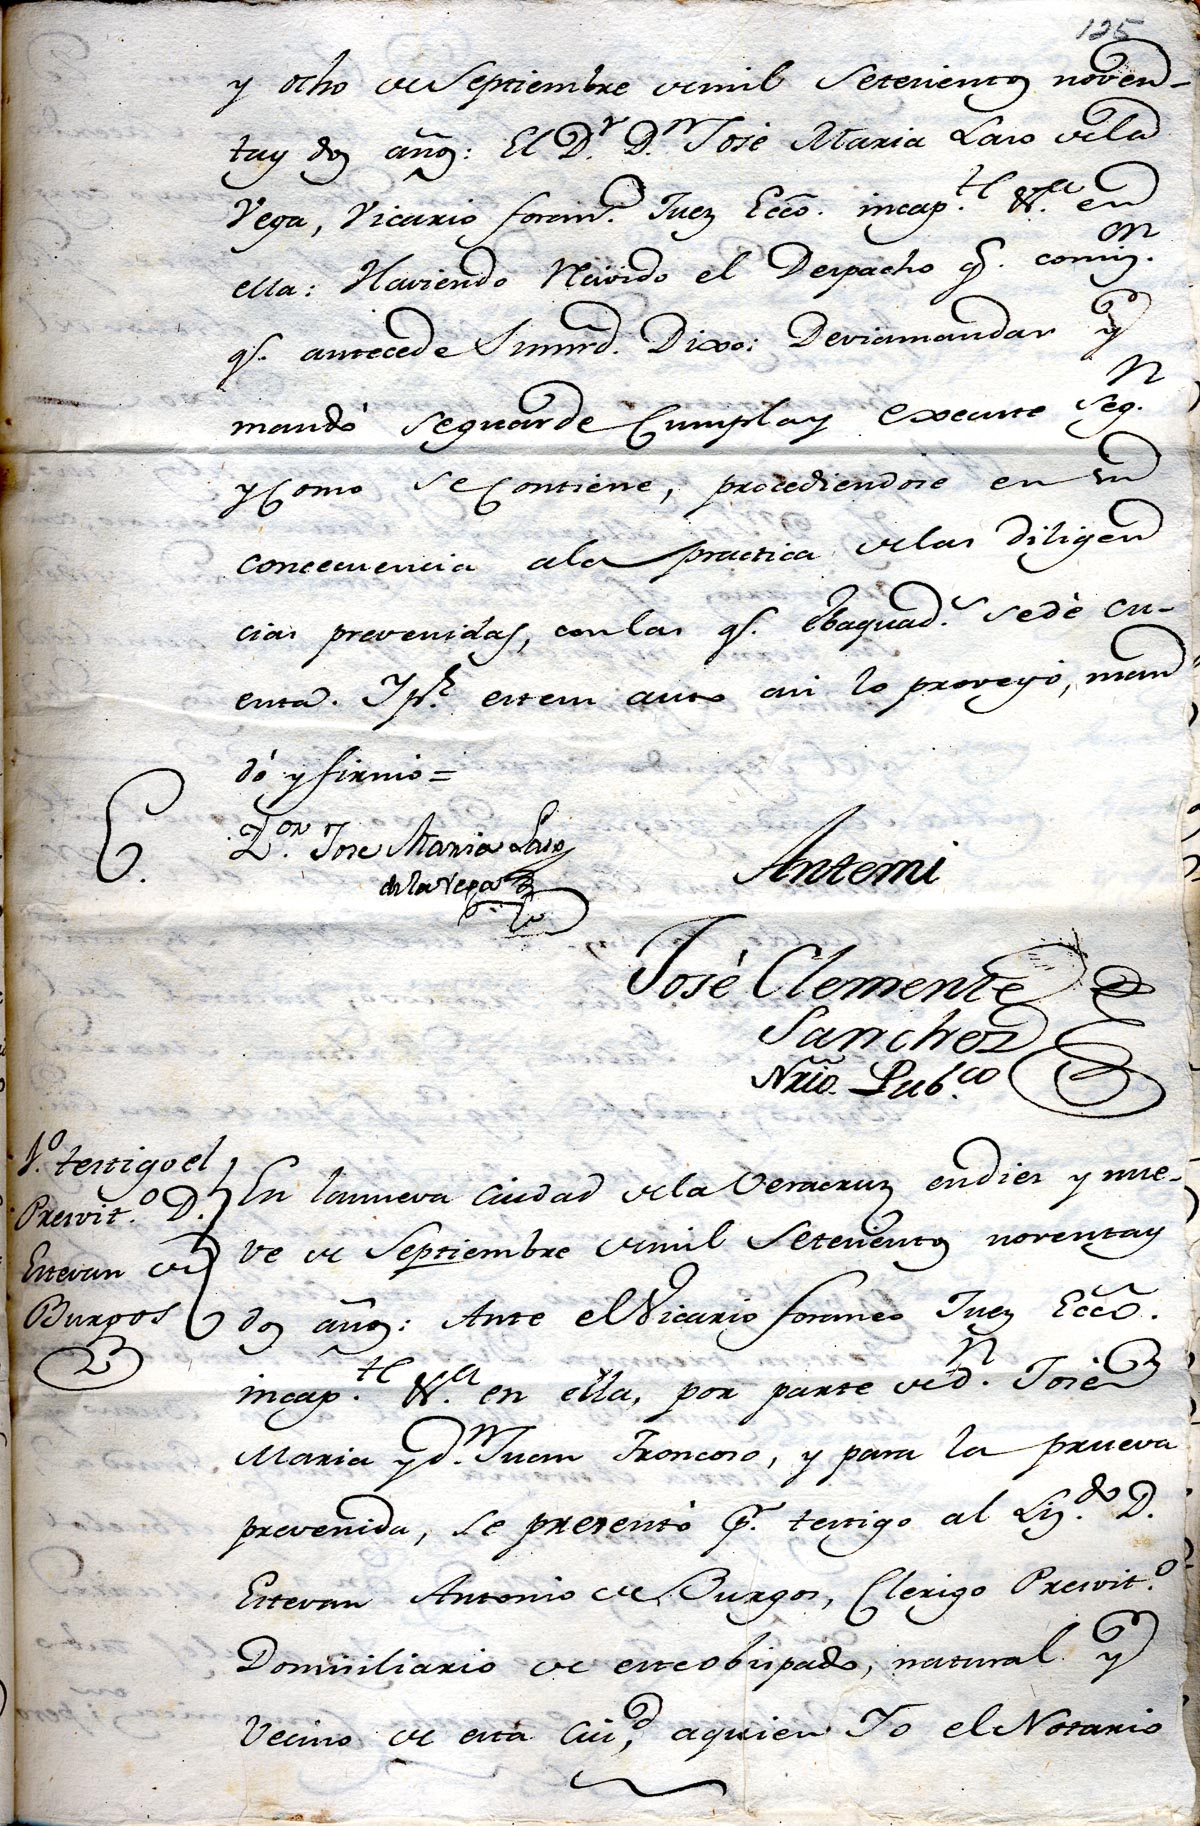 125
y ocho de Septiembre demil Setecientos noven-
tay dos años: El D.r D.n José Maria Laso dela
Vega, Vicario foran.o Juez Ecco. incap.te &.a en
ella: Haviendo Recivido el Despacho q.e comis.on
q.e antecede Sumrd. Dixo: Deviamandar y
mandó seguarde Cumplay Execute Seg.n
yComo seContiene, procediendose en su
concecuencia ala practica delas diligen
cias prevenidas, conlas q.e ebaquad.s sedè cu-
enta. Y p.r estem auto asi lo proveyó, man
dó y firmó =
D.on Jose Maria Laso
de la Vega
Antemi
José Clemente
Sanchez
Nrio. Pub.co
1.o testigo el
Presvit.o D.
Estevan de
Burgos
En lanueva Ciudad dela Veracruz endies y nue-
ve de Septiembre demil Setecientos noventay
dos años: Ante elVicario foraneo Juez Ecco.
incap.te &.a en ella, por parte de d.n José
Maria y d.n Juan Troncoso, y para la prueva
prevenida, se presentó p.r testigo al Liz.do D.
Estevan Antonio de Burgos, Clerigo Presvit.o
Domiciliario de esteobispado, natural y
Vecino de esta Ciu.d, aquien Yo el Notario